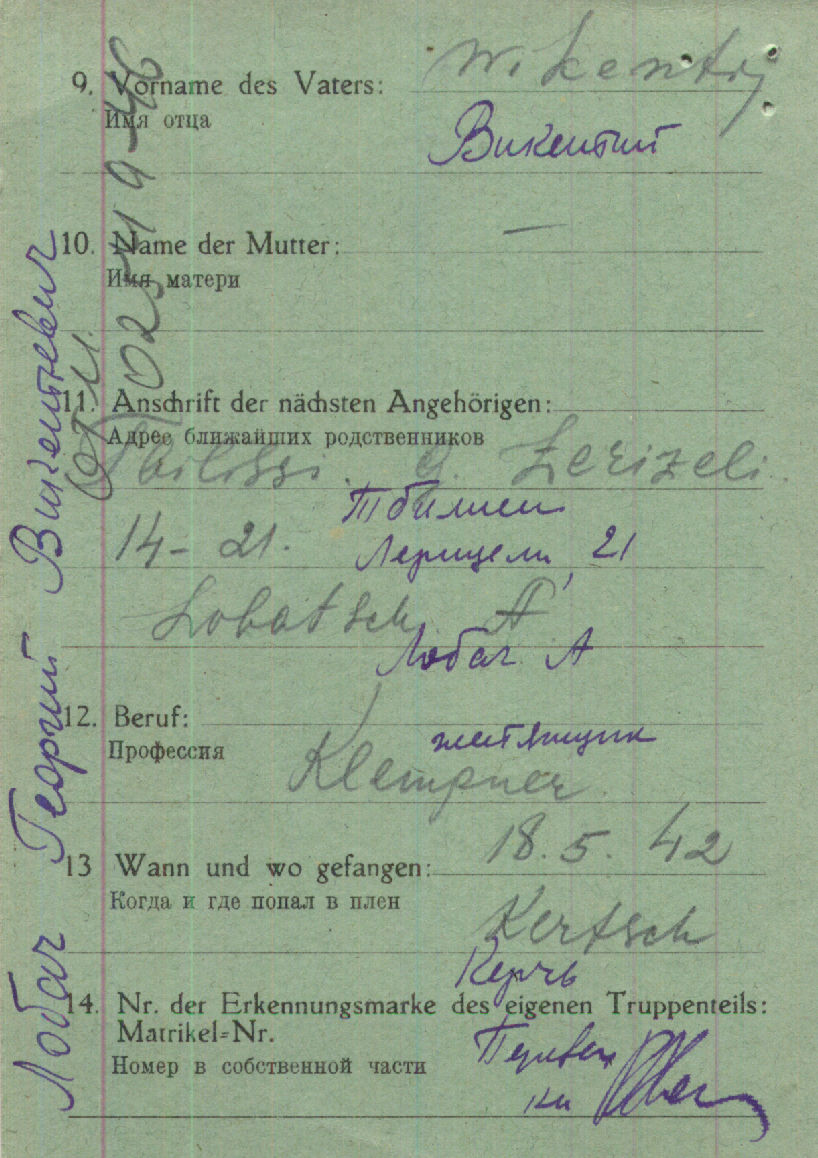 9. Vorname des Vaters: Wikentij
Имя отца
Викентий
10. Name der Mutter: —
Имя матери
11. Anschrift der nächsten Angehörigen:
Адрес ближайших родственников
Tbilissi. Lerizeli.
Тбилиси
14 - 21.
Лерицели, 21
Lobatsch A
Лобач А
12. Beruf:
Профессия
жестянщик
Klempner
13 Wann und wo gefangen: 18. 5. 42
Когда и где попал в плен
Kertsch
Керчь
14. Nr. der Erkennungsmarke des eigenen Truppenteils:
Matrikel=Nr.
Номер в собственной части
Лобач Георгий Викентьевич